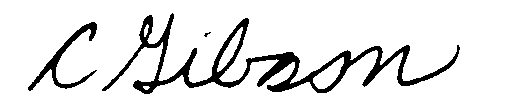 C Gibson